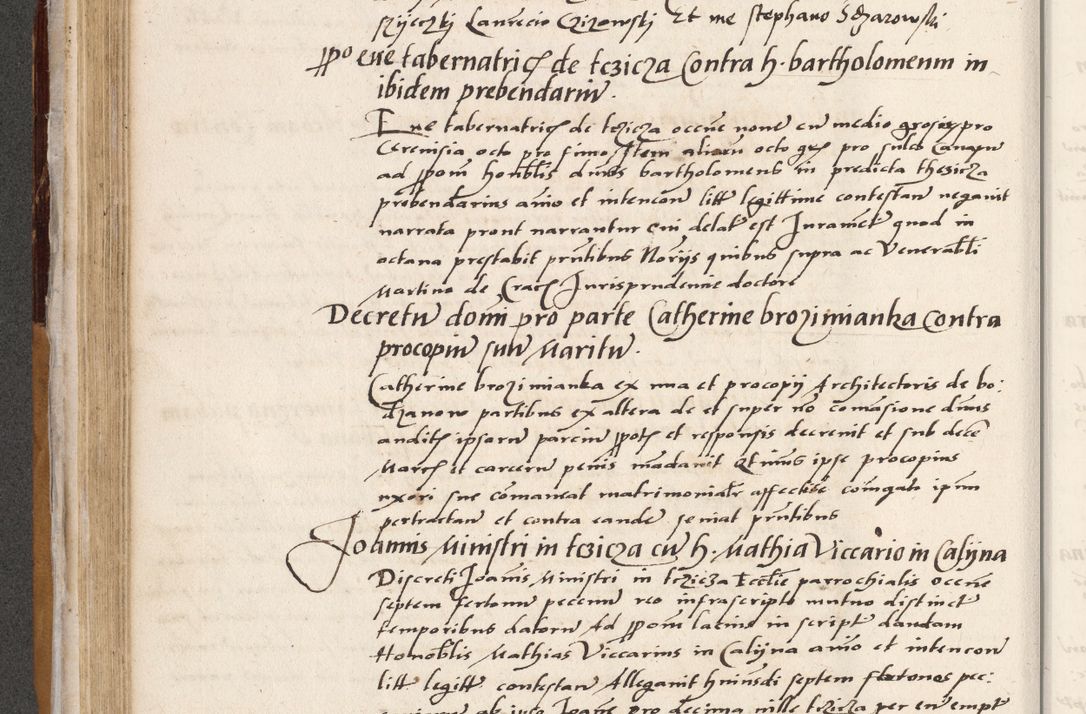 Rzÿeczkj Laurecio Czizowskj Et me Stephano Sdzarowskj
Ppo eue tabernatricꝭ de tczicza Contra h. bartholomeum in
ibidem prebendariū.
Eue tabernatricꝭ de tczicza occne none cū medio grosis pro
Cereuisia octo pro fimo Item aliaru octo gꝭ pro sulco Canapu
ad ppom honblis dnus bartholomeus in predicta thczicza
prebendarius aio et intencon litt legittime contestan negauit
narrata prout narrantur Cui delat est Iuramet quod in
octaua prestabit prntibus Norÿs quibus supra ac Venerabli
Martino de Cracꝭ Iurisprudencie doctore
Decretū domi pro parte Catherine brozimianka Contra
procopiū suū Maritū.
Catherine brozimianka ex vna et procopÿ Architectoris de bo:
dzanow partibus ex altera de et super nō comasione dnus
auditꝭ ipsorū parciū ppotꝭ et responsis decreuit et sub dece
Marcꝭ et carceru penis madauit Qtinus ipse procopius
vxori sue comaneat matrimoniale affectōe coiugato ipm
pertractan et contra eande seuiat prntibus
Joannis Ministri in tczicza cū h. Mathia Viccario in Calÿna
Discreti Joanis Ministri in tczicza Ecclie parrochialis occne
septem fertonu pecuniē reo infrascripto mutuo distinct
temporibus datoru Ad ppom lacius in script dandam
Honoblis Mathias Viccarius in Calÿna aio et intencon
litt legitt contestan Allegauit huiusdi septem fertones pec:
ab ipso Joane pro decima ville tczicza per eū empt